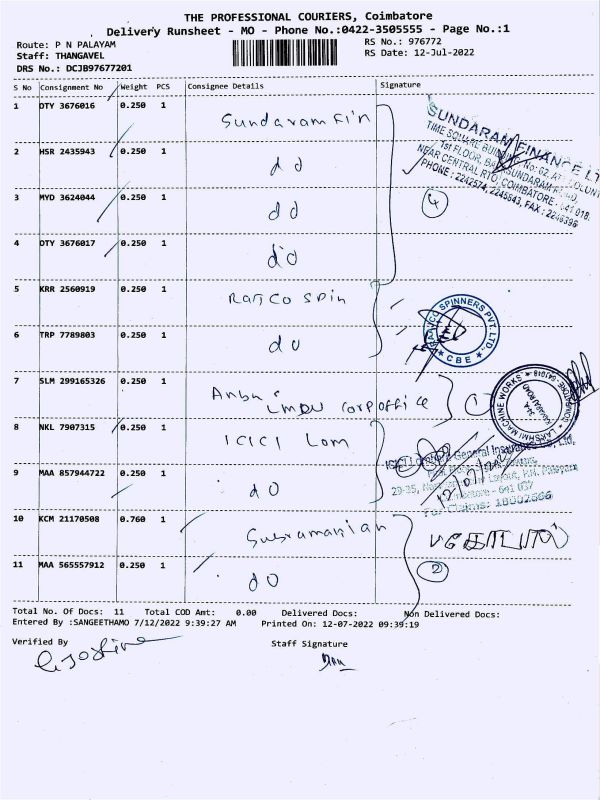 THE PROFESSIONAL COURIERS, Coimbatore
Delivery Runsheet - MO - Phone No.:0422-3505555 - Page No.:1
Route: P N PALAYAM
RS No.: 976772
Staff: THANGAVEL
RS Date: 12-Jul-2022
DRS No.: DCJB97677201
S No Consignment No Weight PCS Consignee Details Signature
1 DTY 3676016 0.250 1 Sundaram Fin
2 HSR 2435943 0.250 1 do
3 MYD 3624044 0.250 1 do
4 DTY 3676017 0.250 1 do
4
SUNDARAM FINANCE LT
TIME SQUARE BUILDING No: 62,
1st FLOOR, SUNDARAM ROAD,
NEAR CENTRAL RTO, COIMBATORE - 641 018.
PHONE : 2242574, 2245643, FAX : 2246396
5 KRR 2560919 0.250 1 Rajco Spin
6 TRP 7789803 0.250 1 do
SPINNERS PVT. LTD.
CBE
7 SLM 299165326 0.250 1 corp office
1
LAKSHMI MACHINE WORKS
8 NKL 7907315 0.250 1 ICICI Lom
9 MAA 857944722 0.250 1 do
2
ICICI Lombard General Insurance Co. Ltd.
Layout, P.N. Palayam
Coimbatore - 641 037
For Claims: 18002666
12/07/2022
10 KCM 21170508 0.760 1 Subramanian
11 MAA 565557912 0.250 1 do
2
Total No. Of Docs: 11 Total COD Amt: 0.00 Delivered Docs: Non Delivered Docs:
Entered By :SANGEETHAMO 7/12/2022 9:39:27 AM Printed On: 12-07-2022 09:39:19
Verified By
Staff Signature